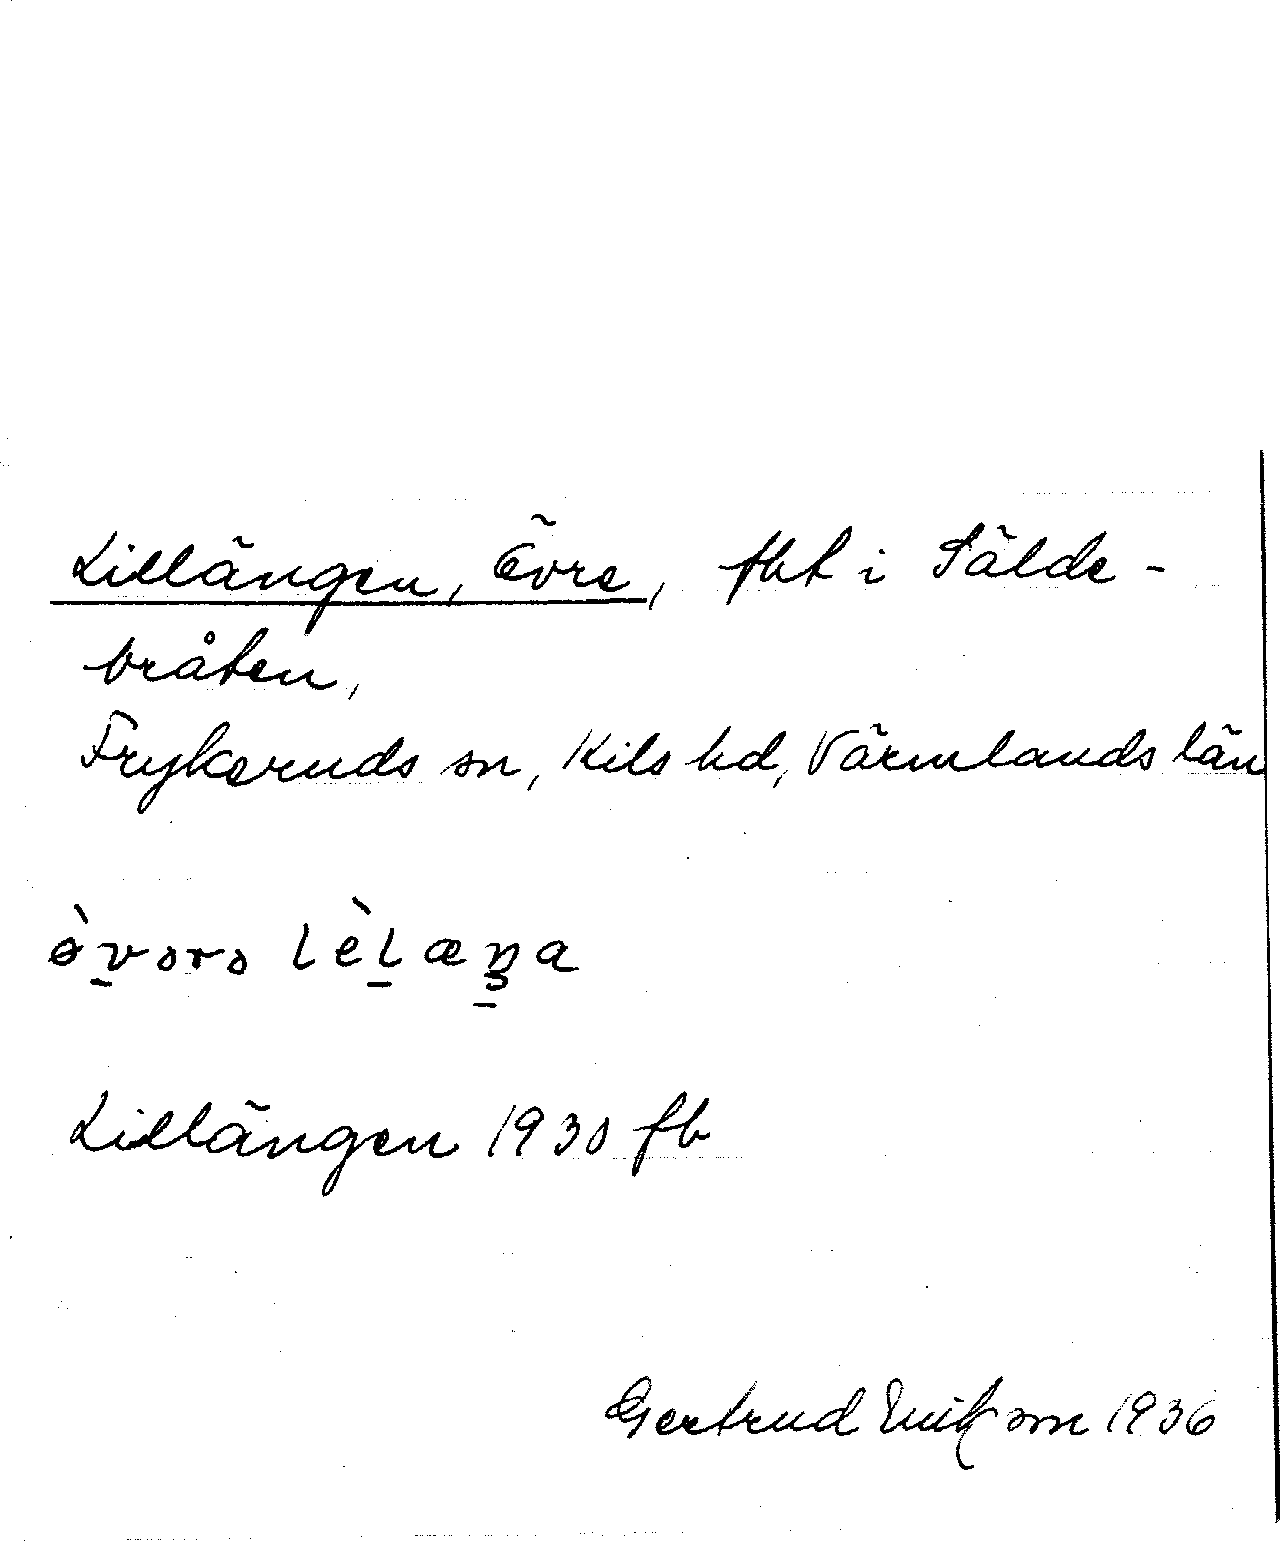 Lillängen, Övre, tht i Sälde-
bråten,
Frykeruds sn, Kils hd, Värmlands län
Lillängen 1930 fb
Gertrud Eriksson 1936